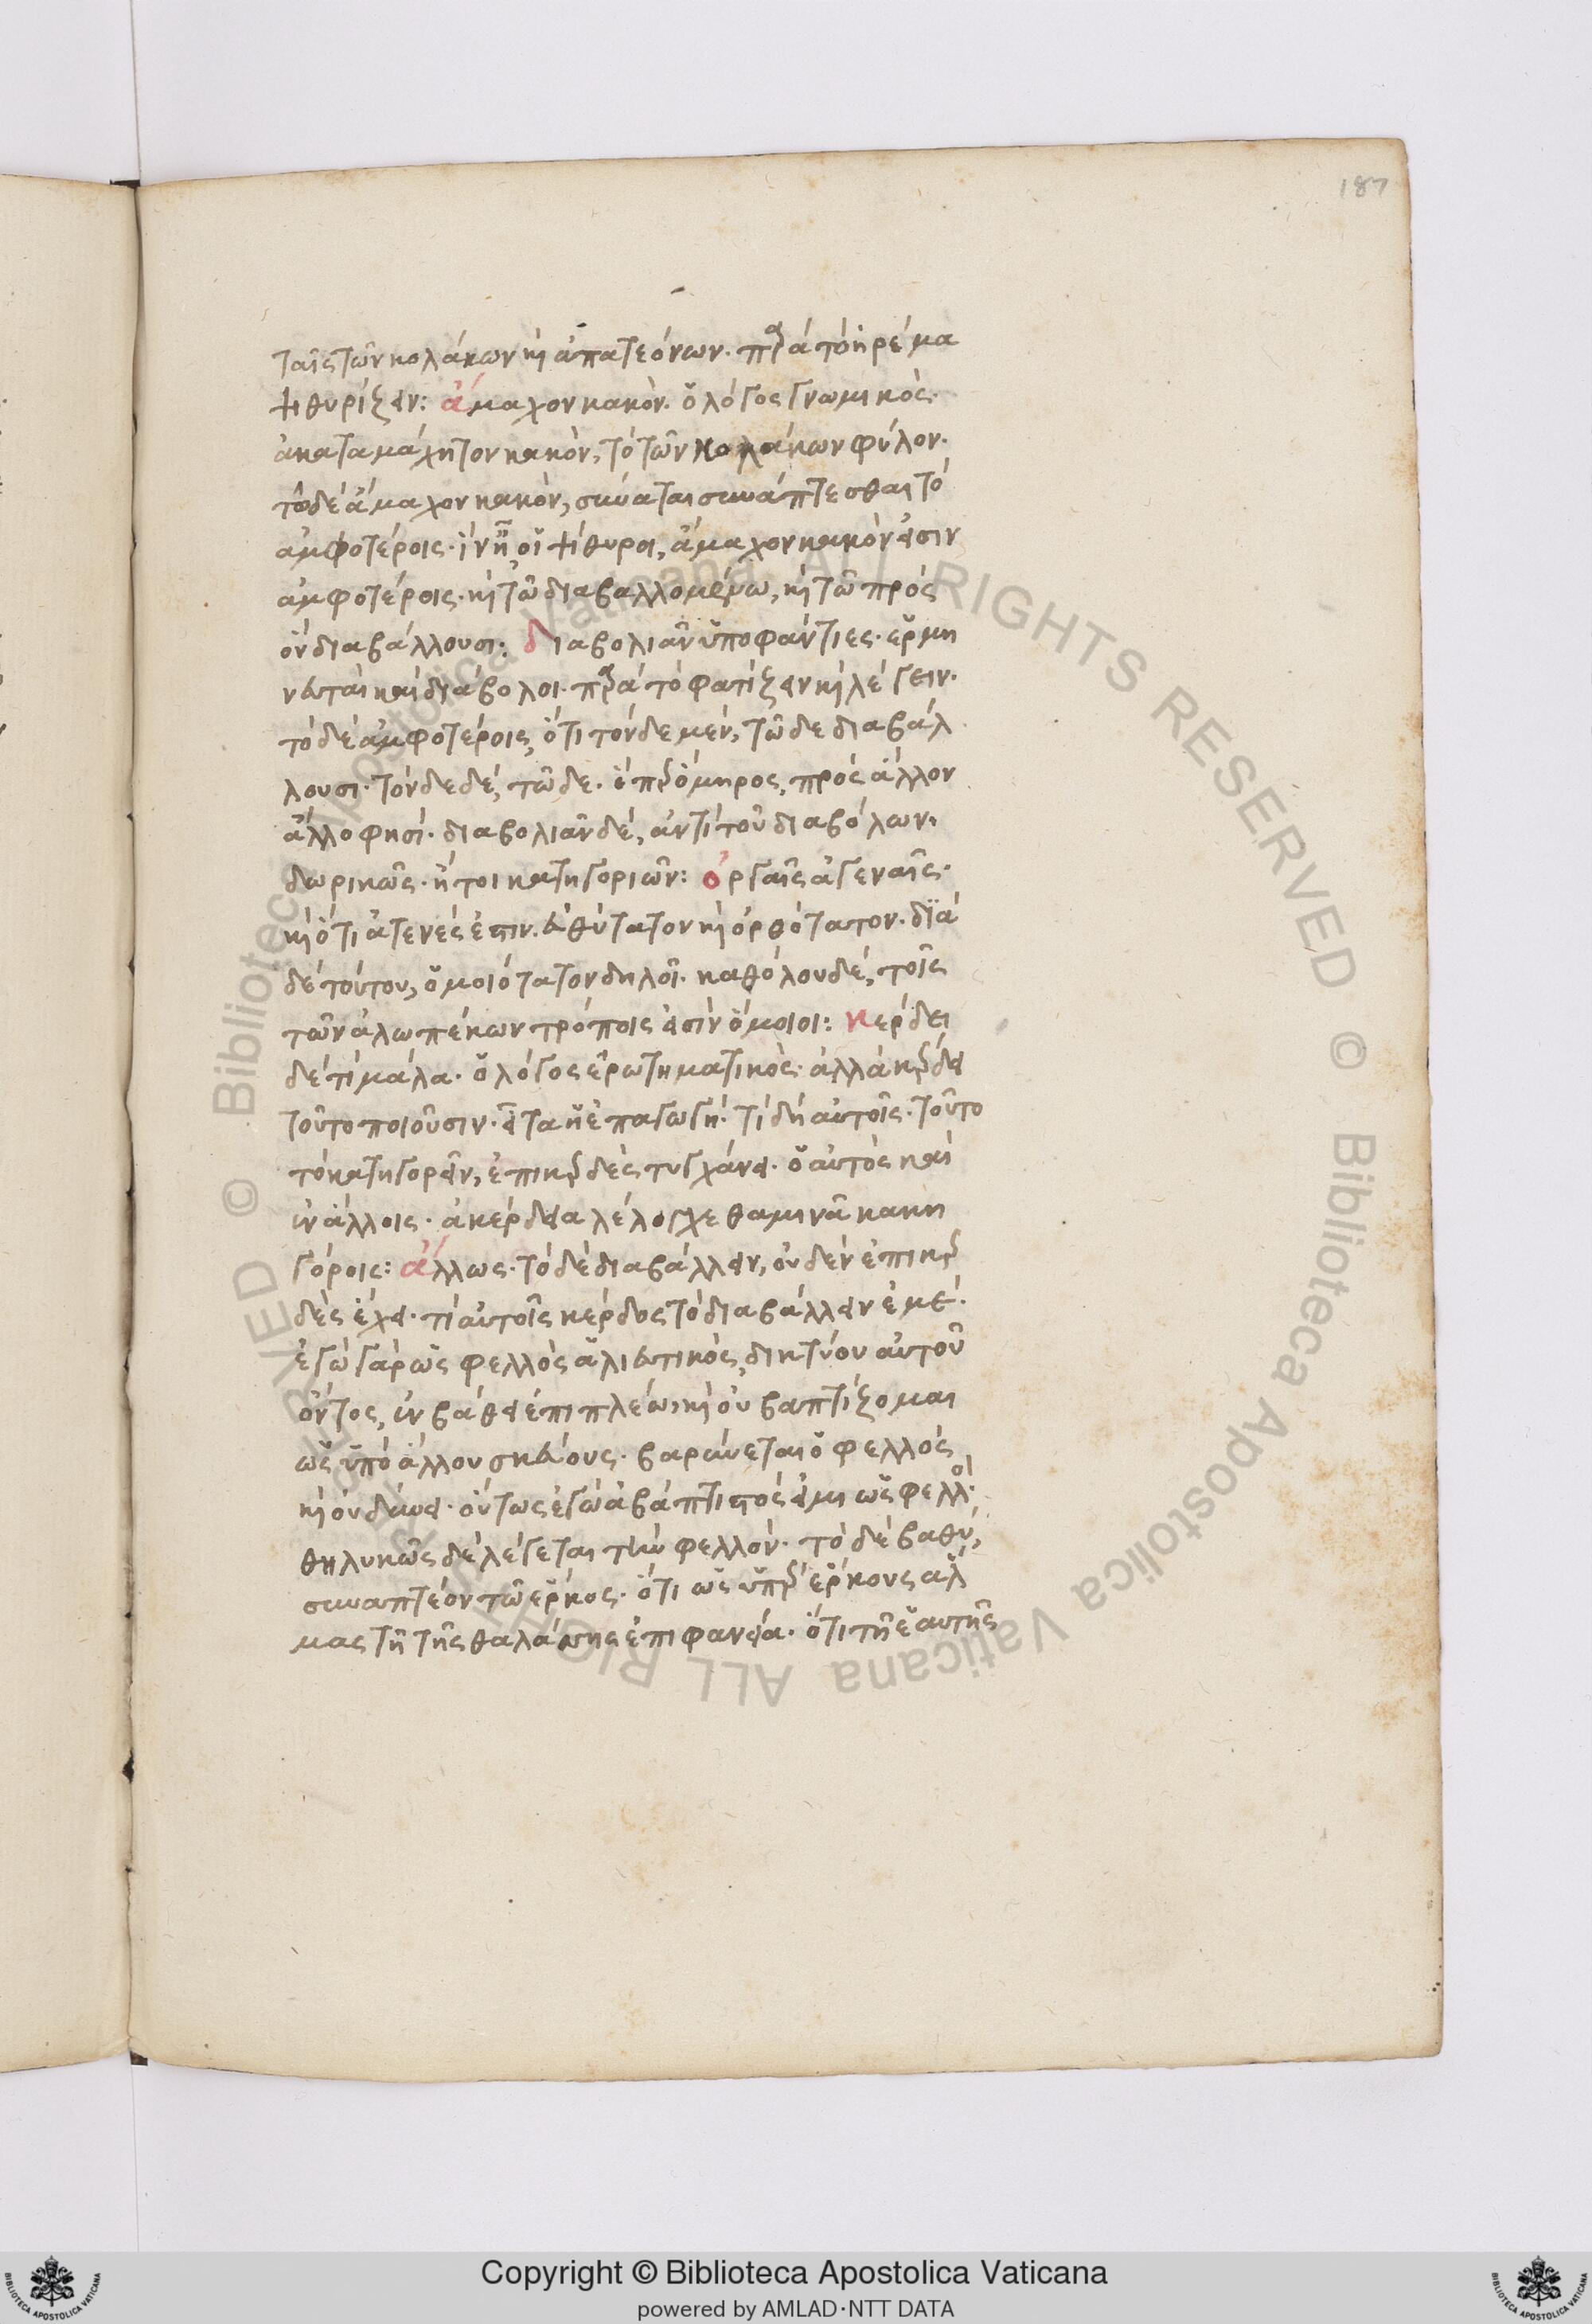 187
ταῖς τῶν κολάκων κὶ ἀπατεόνων. πρὰ τὸ ἠρέμα
ψιθυρίζειν: ἄμαχον κακὸν. ὁ λόγος γνωμικὸς.
ἀκαταμάχητον κακὸν, τὸ τῶν κολάκων φύλον.
τῶ δὲ ἄμαχον κακὸν, δύναται συνάπτεσθαι τὸ
ἀμφοτέροις. ἵν ἦ, οἱ ψίθυροι, ἄμαχον κακὸν εἰσιν
ἀμφοτέροις. κὶ τῶ διαβαλλομένω, κὶ τῶ πρὸς
ὃν διαβάλλουσι: διαβολιᾶν ὑποφάντιες. ἑρμη
νευταὶ καὶ διάβολοι. πρὰ τὸ φατίζειν κὶ λέγειν.
τὸ δὲ ἀμφοτέροις, ὅτι τόνδε μὲν, τῶδε διαβάλ
λουσι. τόνδε δέ, τῶδε. ὅπρ ὅμηρος, πρὸς ἄλλον
ἄλλο φησί. διαβολιᾶν δέ, ἀντὶ τοῦ διαβόλων.
δωρικῶς. ἤτοι κατηγοριῶν: ὀργαῖς ἀγεναῖς.
κὶ ὅτι ἀτενές ἐστιν. εὐθύτατον κὶ ὀρθότατον. διὰ
δὲ τούτου, ὁμοιότατον δηλοῖ. καθόλου δέ, τοῖς
τῶν ἀλωπέκων τρόποις εἰσὶν ὅμοιοι: κέρδει
δὲ τί μάλα. ὁ λόγος ἐρωτηματικὸς. ἀλλὰ κέρδει
τοῦτο ποιοῦσιν. εἶτα ἡ ἐπαγωγή. τί δὴ αὐτοῖς. τοῦτο
τὸ κατηγορεῖν, ἐπικερδὲς τυγχάνει. ὁ αὐτὸς καὶ
ἐν ἄλλοις. ἀκέρδεια λέλογχε θαμινᾶ κακη
γόροις: ἄλλως. τὸ δὲ διαβάλλειν, οὐδὲν ἐπικερ
δὲς ἔχει. τί αὐτοῖς κέρδος τὸ διαβάλλειν ἐμέ.
ἐγὼ γὰρ ὡς φελλὸς ἁλιευτικὸς, δικτύου αὐτοῦ
ὄντος, ἐν βάθει ἐπιπλέω, κὶ οὐ βαπτίζομαι
ὡς ὑπὸ ἄλλου σκεύους. βαρύνεται ὁ φελλὸς
κὶ οὐ δύνει. οὕτως ἐγὼ ἀβάπτιστός εἰμι ὡς φελλοί.
θηλυκῶς δὲ λέγεται τὴν φελλόν. τὸ δὲ βαθύ,
συναπτέον τῶ ἕρκος. ὅτι ὡς ὑπὲρ ἕρκους ἅλ
μας τῆ τῆς θαλάσσης ἐπιφανεία. ὅτι τῆ ἑαυτῆς
Copyright © Biblioteca Apostolica Vaticana
powered by AMLAD·NTT DATA
© Biblioteca Apostolica Vaticana ALL RIGHTS RESERVED
© Biblioteca Apostolica Vaticana ALL RIGHTS RESERVED
BIBLIOTECA APOSTOLICA VATICANA
BIBLIOTECA APOSTOLICA VATICANA